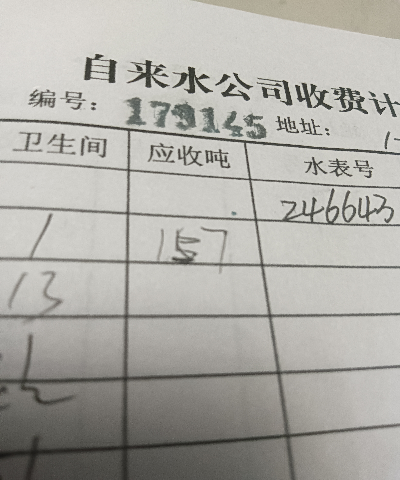 自来水公司收费计
编号: 179145 地址: 1
卫生间 应收吨 水表号
246643
1 157
13